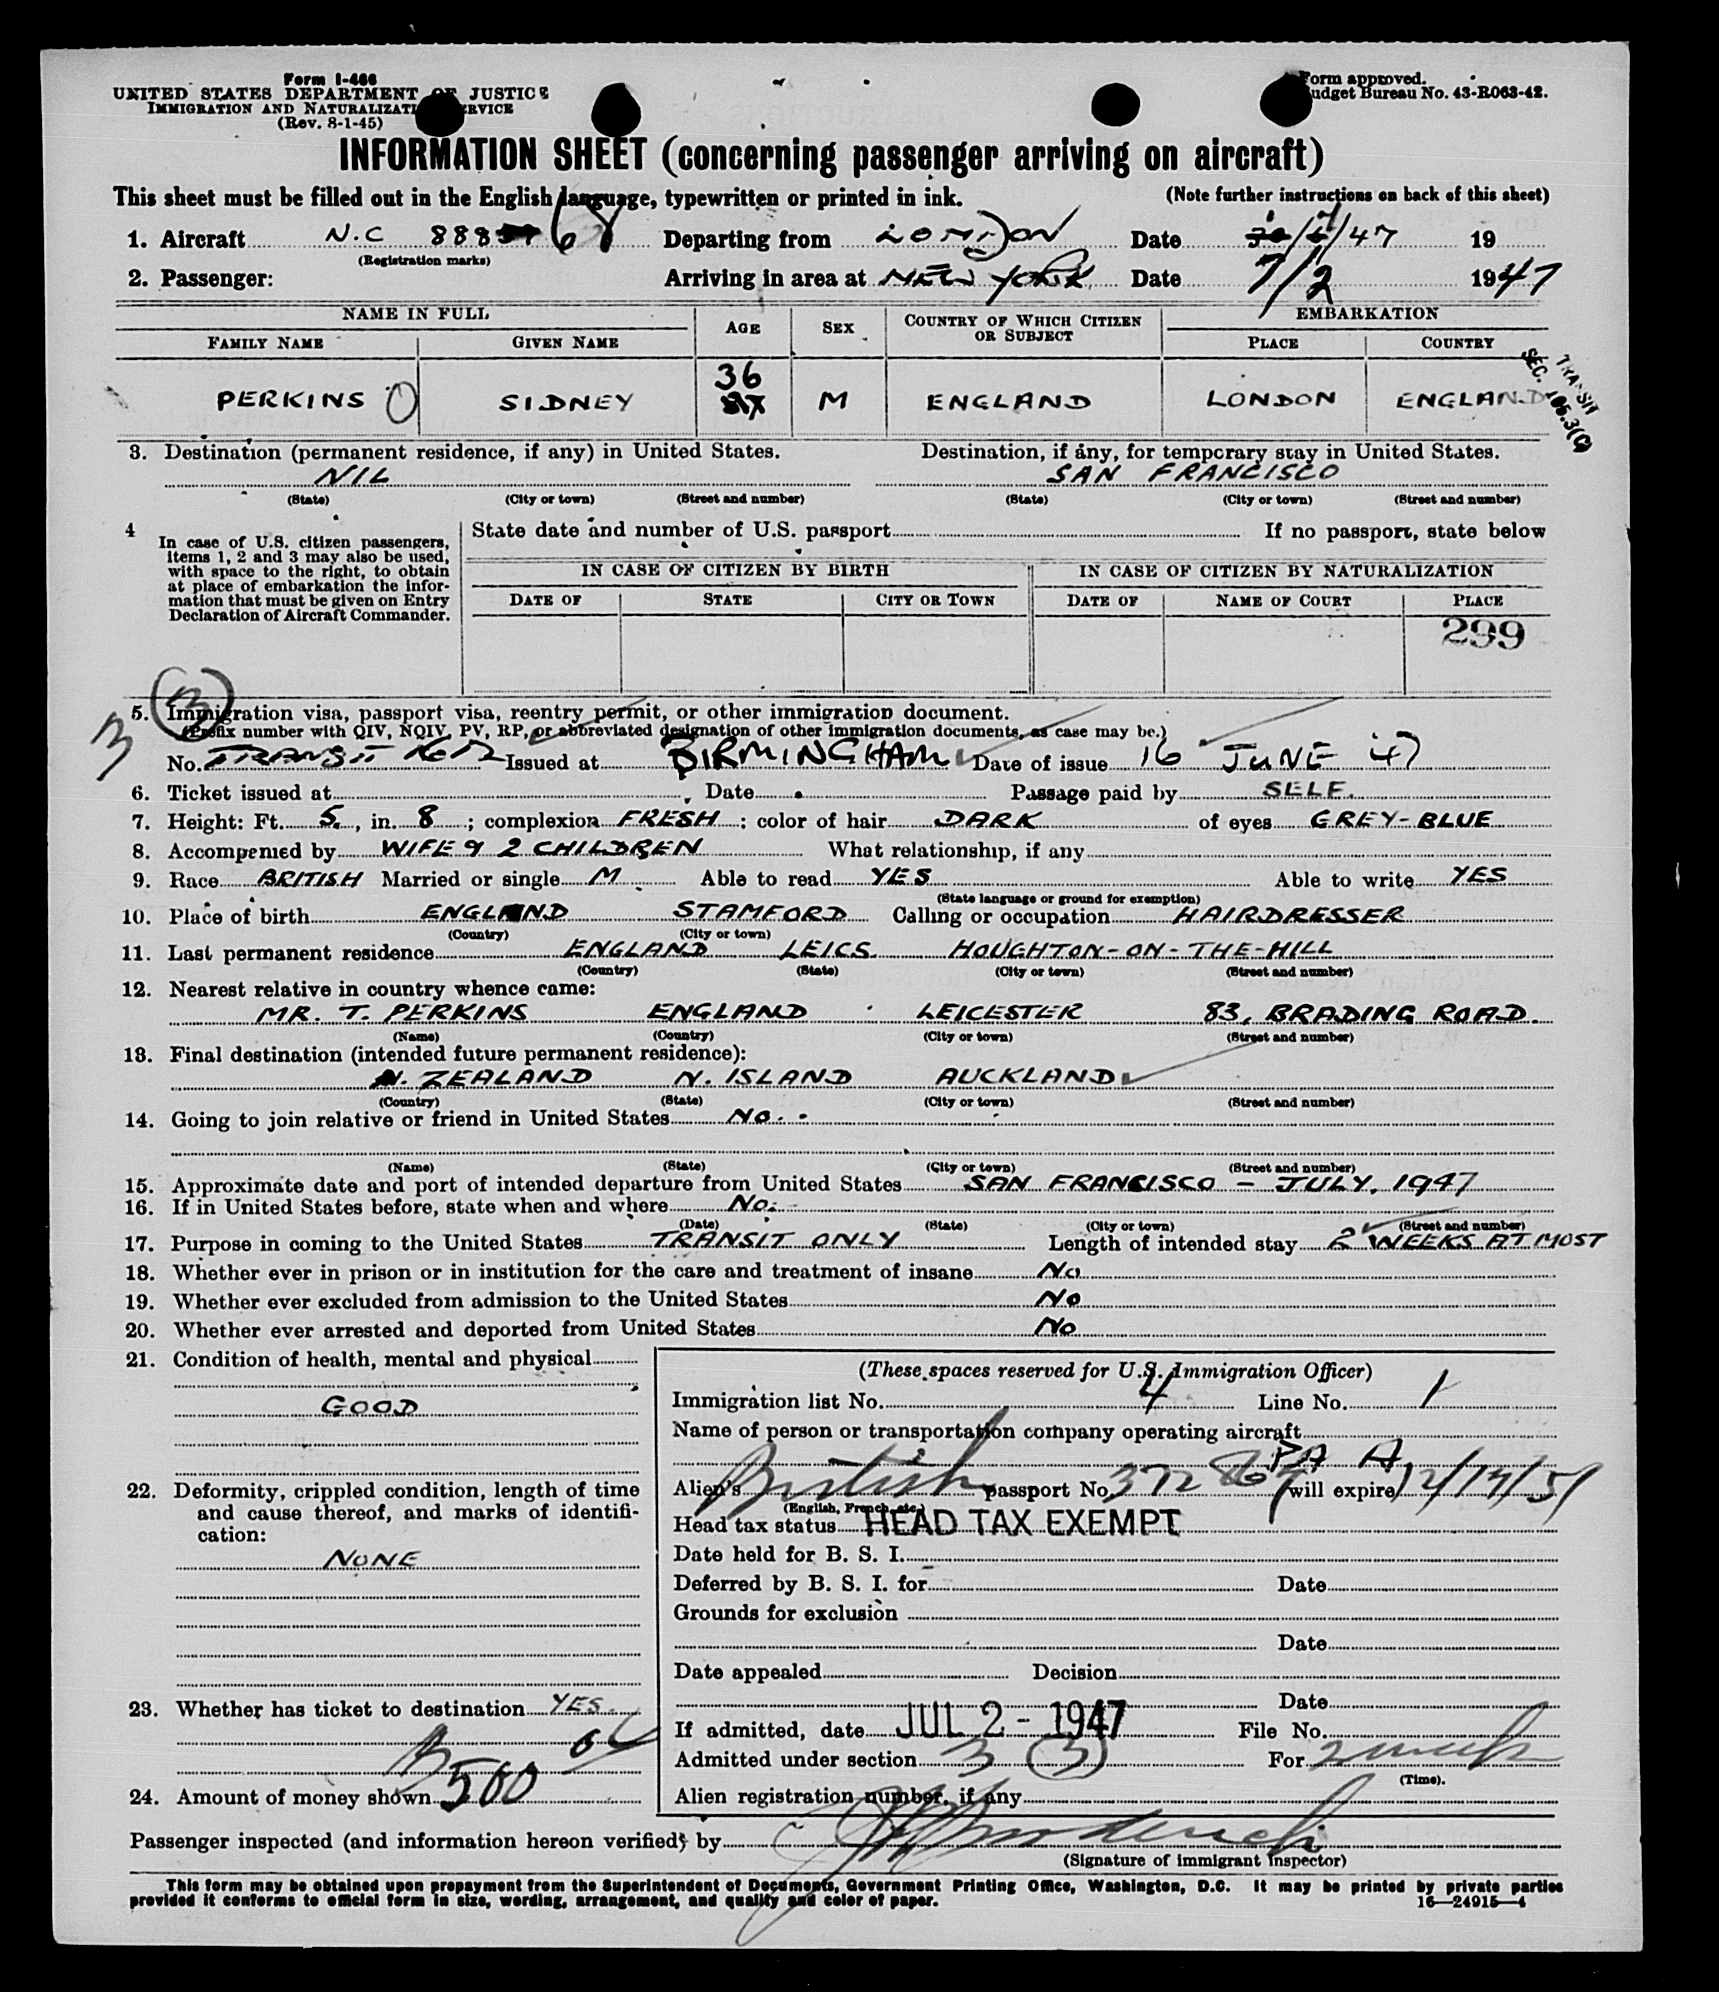 Form I-466
UNITED STATES DEPARTMENT OF JUSTICE
IMMIGRATION AND NATURALIZATION SERVICE
(Rev. 8-1-45)
Form approved.
Budget Bureau No. 43-R063-42.
INFORMATION SHEET (concerning passenger arriving on aircraft)
This sheet must be filled out in the English language, typewritten or printed in ink. (Note further instructions on back of this sheet)
1. Aircraft N.C 888 68 Departing from LONDON Date /47 19
(Registration marks)
2. Passenger: Arriving in area at NEW YORK Date 7/2 1947
NAME IN FULL AGE SEX COUNTRY OF WHICH CITIZEN OR SUBJECT EMBARKATION
FAMILY NAME GIVEN NAME PLACE COUNTRY
36
PERKINS SIDNEY M ENGLAND LONDON ENGLAND
TRANSIT
SEC. 105.3(C)
3. Destination (permanent residence, if any) in United States. Destination, if any, for temporary stay in United States.
NIL SAN FRANCISCO
(State) (City or town) (Street and number) (State) (City or town) (Street and number)
4 In case of U.S. citizen passengers, items 1, 2 and 3 may also be used, with space to the right, to obtain at place of embarkation the information that must be given on Entry Declaration of Aircraft Commander.
State date and number of U.S. passport If no passport, state below
IN CASE OF CITIZEN BY BIRTH IN CASE OF CITIZEN BY NATURALIZATION
DATE OF STATE CITY OR TOWN DATE OF NAME OF COURT PLACE
299
3 (3)
5. Immigration visa, passport visa, reentry permit, or other immigration document.
(Prefix number with QIV, NQIV, PV, RP, or abbreviated designation of other immigration documents, as case may be.)
No. TRANSIT Issued at BIRMINGHAM Date of issue 16 JUNE 47
6. Ticket issued at Date Passage paid by SELF.
7. Height: Ft. 5, in. 8; complexion FRESH; color of hair DARK of eyes GREY-BLUE
8. Accompenied by WIFE & 2 CHILDREN What relationship, if any
9. Race BRITISH Married or single M Able to read YES Able to write YES
(State language or ground for exemption)
10. Place of birth ENGLAND STAMFORD Calling or occupation HAIRDRESSER
(Country) (City or town)
11. Last permanent residence ENGLAND LEICS. HOUGHTON-ON-THE-HILL
(Country) (State) (City or town) (Street and number)
12. Nearest relative in country whence came:
MR. T. PERKINS ENGLAND LEICESTER 83, BRADING ROAD.
(Name) (Country) (City or town) (Street and number)
13. Final destination (intended future permanent residence):
N. ZEALAND N. ISLAND AUCKLAND
(Country) (State) (City or town) (Street and number)
14. Going to join relative or friend in United States NO.
(Name) (State) (City or town) (Street and number)
15. Approximate date and port of intended departure from United States SAN FRANCISCO - JULY, 1947
16. If in United States before, state when and where NO.
(Date) (State) (City or town) (Street and number)
17. Purpose in coming to the United States TRANSIT ONLY Length of intended stay 2 WEEKS AT MOST
18. Whether ever in prison or in institution for the care and treatment of insane NO
19. Whether ever excluded from admission to the United States NO
20. Whether ever arrested and deported from United States NO
21. Condition of health, mental and physical
GOOD
22. Deformity, crippled condition, length of time and cause thereof, and marks of identification:
NONE
23. Whether has ticket to destination YES.
24. Amount of money shown 500
(These spaces reserved for U.S. Immigration Officer)
Immigration list No. 4 Line No. 1
Name of person or transportation company operating aircraft
PAA
Alien's British passport No. will expire 12/14/51
(English, French, etc.)
Head tax status HEAD TAX EXEMPT
Date held for B. S. I.
Deferred by B. S. I. for Date
Grounds for exclusion
Date
Date appealed Decision
Date
If admitted, date JUL 2 - 1947 File No.
Admitted under section 3 (3) For 2 weeks
(Time).
Alien registration number, if any
Passenger inspected (and information hereon verified) by
(Signature of immigrant inspector)
This form may be obtained upon prepayment from the Superintendent of Documents, Government Printing Office, Washington, D.C. It may be printed by private parties
provided it conforms to official form in size, wording, arrangement, and quality and color of paper. 16—24915-4